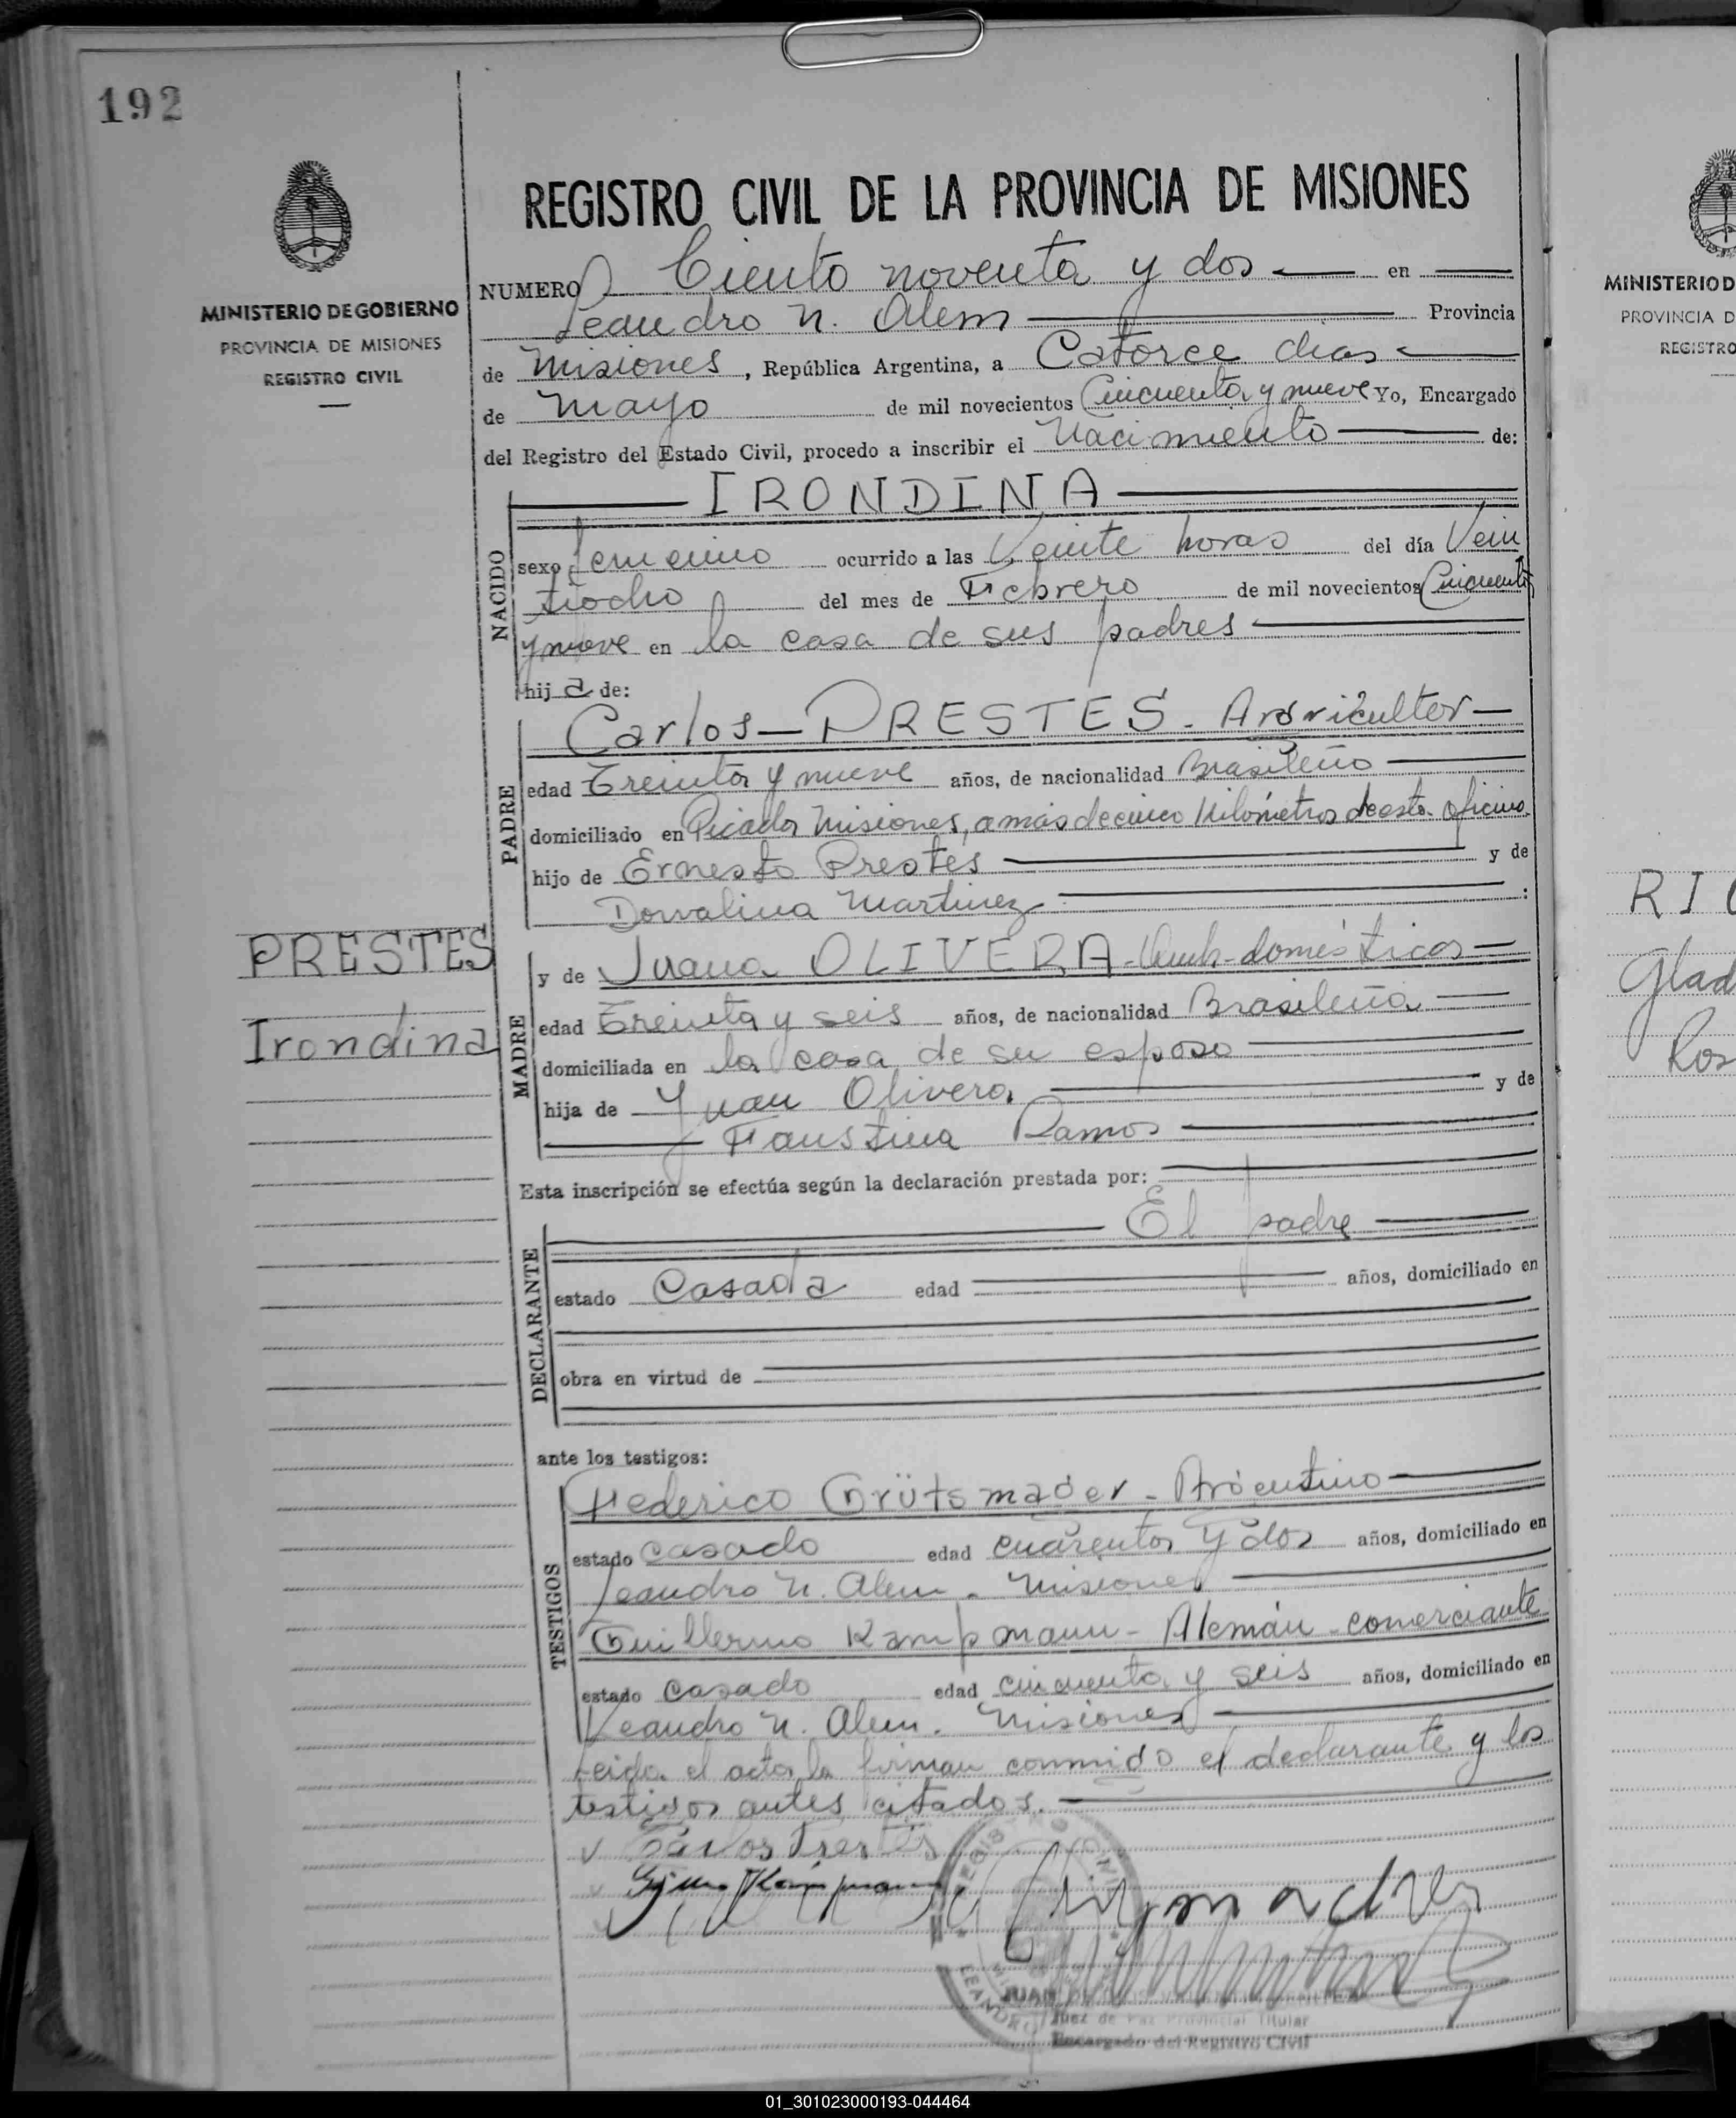 192
MINISTERIO DE GOBIERNO
PROVINCIA DE MISIONES
REGISTRO CIVIL
PRESTES
Irondina
REGISTRO CIVIL DE LA PROVINCIA DE MISIONES
NUMERO Ciento noventa y dos en
Leandro N. Alem Provincia
de Misiones, República Argentina, a Catorce dias
de Mayo de mil novecientos Cincuenta y nueve Yo, Encargado
del Registro del Estado Civil, procedo a inscribir el Nacimiento de:
IRONDINA
NACIDO
sexo femenino ocurrido a las Veinte horas del día Vein
tiocho del mes de Febrero de mil novecientos Cincuenta
y nueve en la casa de sus padres
hija de:
PADRE
Carlos - PRESTES - Agricultor
edad Treinta y nueve años, de nacionalidad Brasileño
domiciliado en Picada Misiones, a más de cinco Kilómetros de esta oficina
hijo de Ernesto Prestes y de
Dorvalina Martinez :
MADRE
y de Juana OLIVERA - domésticos
edad Treinta y seis años, de nacionalidad Brasileña
domiciliada en la casa de su esposo
hija de Juan Olivera y de
Faustina Ramos
Esta inscripción se efectúa según la declaración prestada por:
DECLARANTE
El padre
estado Casada edad años, domiciliado en
obra en virtud de
ante los testigos:
TESTIGOS
Federico Grütsmager - Argentino
estado casado edad cuarenta y dos años, domiciliado en
Leandro N. Alem - Misiones
Guillermo Kampmann - Alemán - comerciante
estado casado edad cincuenta y seis años, domiciliado en
Leandro N. Alem. Misiones
Leida el acta, la firman conmigo el declarante y los
testigos antes citados.
JUAN
Juez de Paz Provincial Titular
Encargado del Registro Civil
MINISTERIO D
PROVINCIA D
REGISTRO
RIC
Glad
Ros
01_301023000193-044464